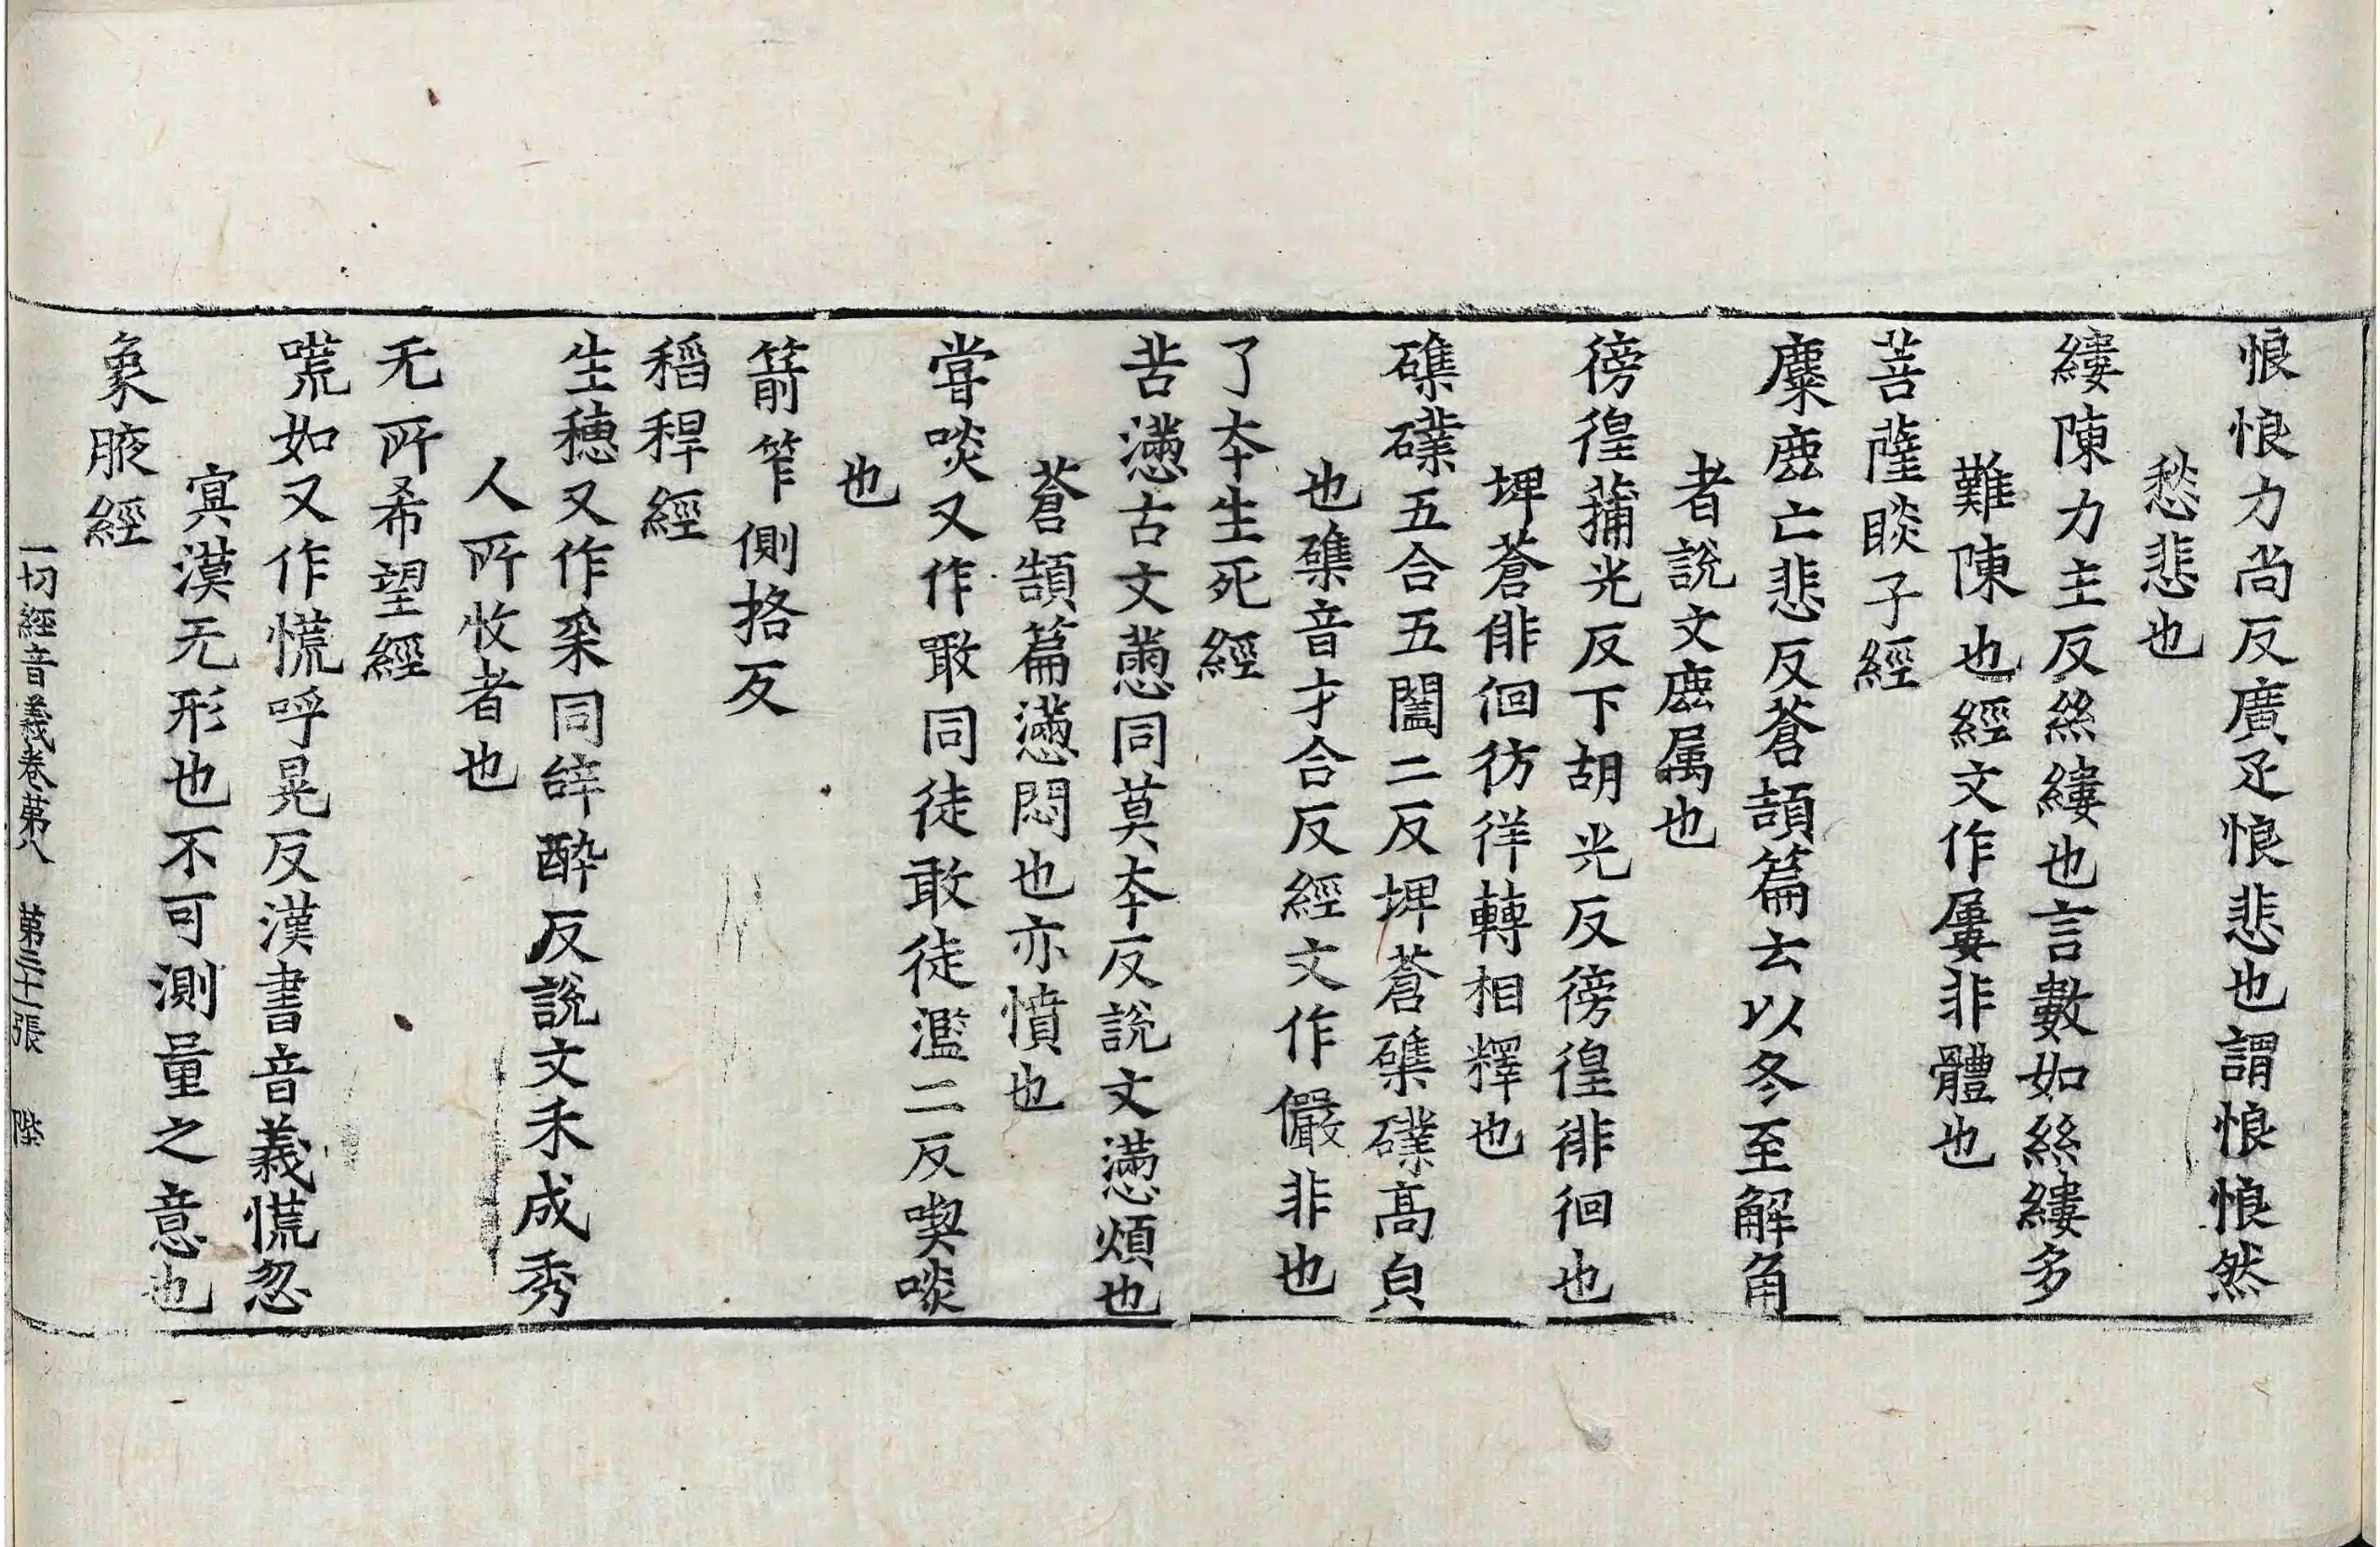 悢悢力尚反廣疋悢悲也謂悢悢然
愁悲也
縷陳力主反絲縷也言數如絲縷多
難陳也經文作屢非體也
菩薩睒子經
麋鹿亡悲反蒼頡篇云以冬至解角
者說文鹿属也
徬徨蒲光反下胡光反徬徨徘徊也
埤蒼俳徊彷徉轉相釋也
磼礏五合五闔二反埤蒼磼礏高皃
也磼音才合反經文作儼非也
了夲生死經
苦懣古文𢞞同莫夲反說文懣煩也
蒼頡篇懣悶也亦憤也
甞啖又作噉同徒敢徒濫二反喫啖
也
箭笮側挌反
稻稈經
生穗又作采同辤醉反說文禾成秀
人所收者也
无所希望經
㗬如又作慌呼晃反漢書音義慌忽
㝠漠无形也不可測量之意也
象腋經
一切經音義卷第八 第三十一張 陛